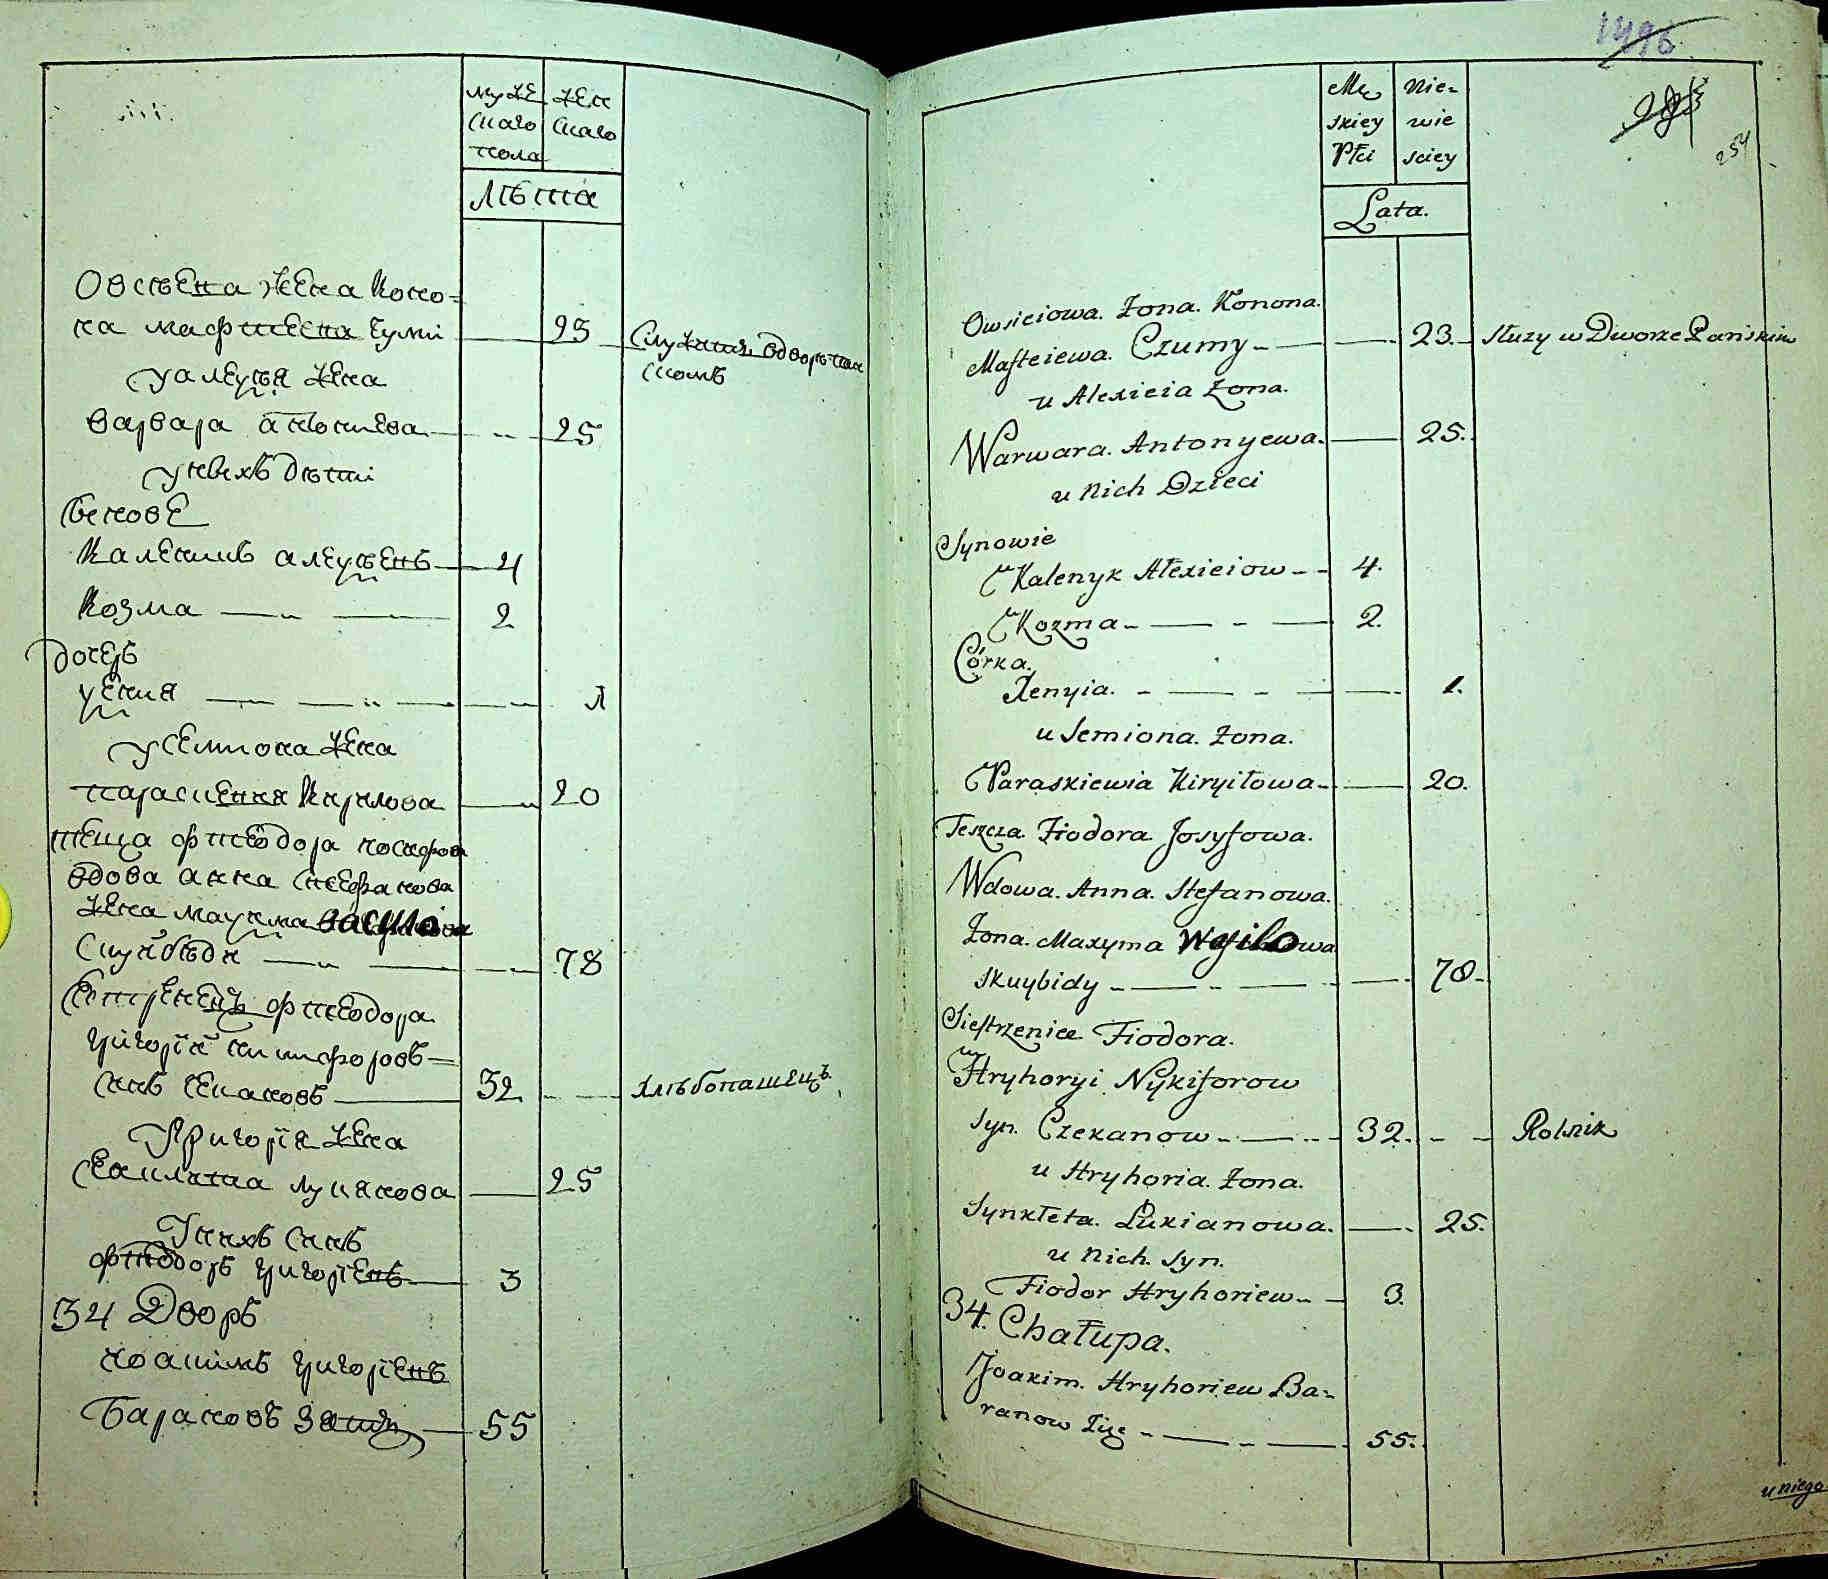 муже
скаго
пола
жен
скаго
Лѣта
Овсѣева жена Коно=
на Мафтеева Чумы
23
Служитъ в дворѣ пан
скомъ
у Алеѯѣя жена
Варвара Антониева
25
у нихъ дѣти
Сынове
Каленикъ Алеѯѣевъ
4
Козма
2
Дочерь
Ѯения
1
у Семиона жена
Параскевия Кирилова
20
Теща Фтеодора Иосифова
Вдова Анна Стефанова
жена Маѯима
Скуйбѣди
78
Сестренецъ Фтеодора
Григорій Никифоровъ
сынъ Чекановъ
32
Хлѣбопашецъ
У Григорія жена
Сынклита Лукянова
25
У нихъ сынъ
Фтеодоръ Григоріевъ
3
34 Дворъ
Иоакимъ Григоріевъ
Барановъ Зять
55
1496
254
Mę
skiey
Płci
Nie-
wie
sciey
Lata.
Owsieiowa. Żona. Konona.
Mafteiewa. Czumy
23.
Służy w Dworze Pańskim
u Alexieia Żona.
Warwara. Antonyewa.
25.
u nich Dzieci
Synowie
Kalenyk Alexieiow
4.
Kozma
2.
Córka.
Xenyia.
1.
u Semiona. Żona.
Paraskiewia Kiryiłowa
20.
Teszcza. Fiodora Josyfowa.
Wdowa. Anna. Stefanowa.
Żona. Maxyma
Skuybidy
78.
Siestrzeniec Fiodora.
Hryhoryi Nykiforow
Syn. Czekanow
32.
Rolnik
u Hryhoria. Żona.
Synkleta. Lukianowa.
25.
u nich. Syn.
Fiodor Hryhoriew
3.
34. Chałupa.
Joakim. Hryhoriew Ba=
ranow Zięć
55.
u niego